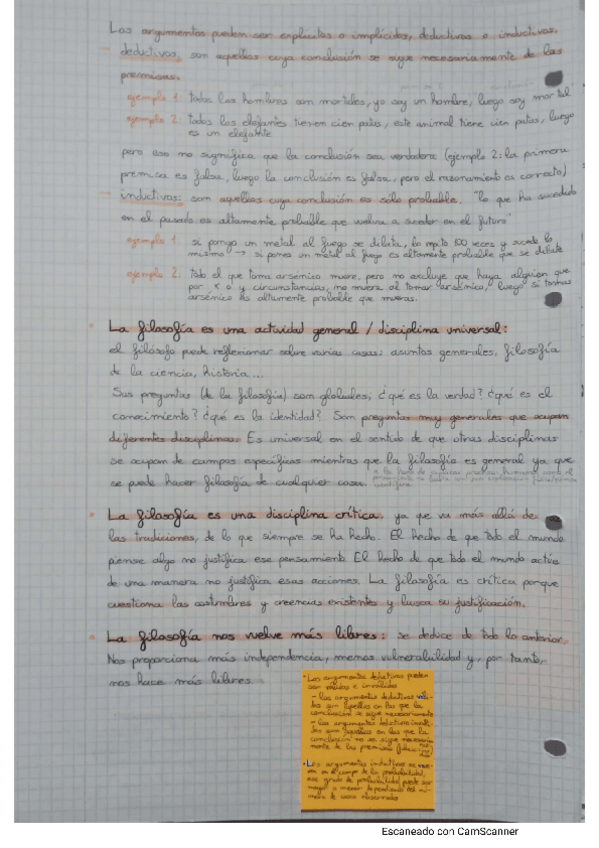 Los argumentos pueden ser explícitos o implícitos, deductivos o inductivos.
deductivos, son aquellos cuya conclusión se sigue necesariamente de las
premisas.
ejemplo 1: todos los hombres son mortales, yo soy un hombre, luego soy mortal
ejemplo 2: todos los elefantes tienen cien patas, este animal tiene cien patas, luego
es un elefante
pero eso no significa que la conclusión sea verdadera (ejemplo 2: la primera
premisa es falsa, luego la conclusión es falsa, pero el razonamiento es correcto)
inductivos: son aquellos cuya conclusión es sólo probable. "lo que ha sucedido
en el pasado es altamente probable que vuelva a suceder en el futuro"
ejemplo 1: si pongo un metal al fuego se dilata, lo repito 100 veces y sucede lo
mismo → si pones un metal al fuego es altamente probable que se dilate
ejemplo 2: todo el que toma arsénico muere, pero no excluye que haya alguien que
por y circunstancias, no muera al tomar arsénico, luego si tomas
arsénico es altamente probable que mueras.
La filosofía es una actividad general / disciplina universal:
el filósofo puede reflexionar sobre varias cosas: asuntos generales, filosofía
de la ciencia, historia...
Sus preguntas (de la filosofía) son globales, ¿qué es la verdad? ¿qué es el
conocimiento? ¿qué es la identidad? Son preguntas muy generales que ocupan
diferentes disciplinas. Es universal en el sentido de que otras disciplinas
se ocupan de campos específicos mientras que la filosofía es general ya que
se puede hacer filosofía de cualquier cosa.
La filosofía es una disciplina crítica, ya que va más allá de
las tradiciones, de lo que siempre se ha hecho. El hecho de que todo el mundo
piense algo no justifica ese pensamiento. El hecho de que todo el mundo actúe
de una manera no justifica esas acciones. La filosofía es crítica porque
cuestiona las costumbres y creencias existentes y busca su justificación.
La filosofía nos vuelve más libres: se deduce de todo lo anterior.
Nos proporciona más independencia, menos vulnerabilidad y, por tanto,
nos hace más libres
• Los argumentos deductivos pueden
ser válidos e inválidos
- los argumentos deductivos váli-
dos son aquellos en los que la
conclusión se sigue necesariamente
- los argumentos deductivos inváli-
dos son aquellos en los que la
conclusión no se sigue necesaria-
mente de las premisas
• Los argumentos inductivos se mue-
ven en el campo de la probabilidad,
ese grado de probabilidad puede ser
mayor o menor dependiendo del nú-
mero de casos observados
Escaneado con CamScanner